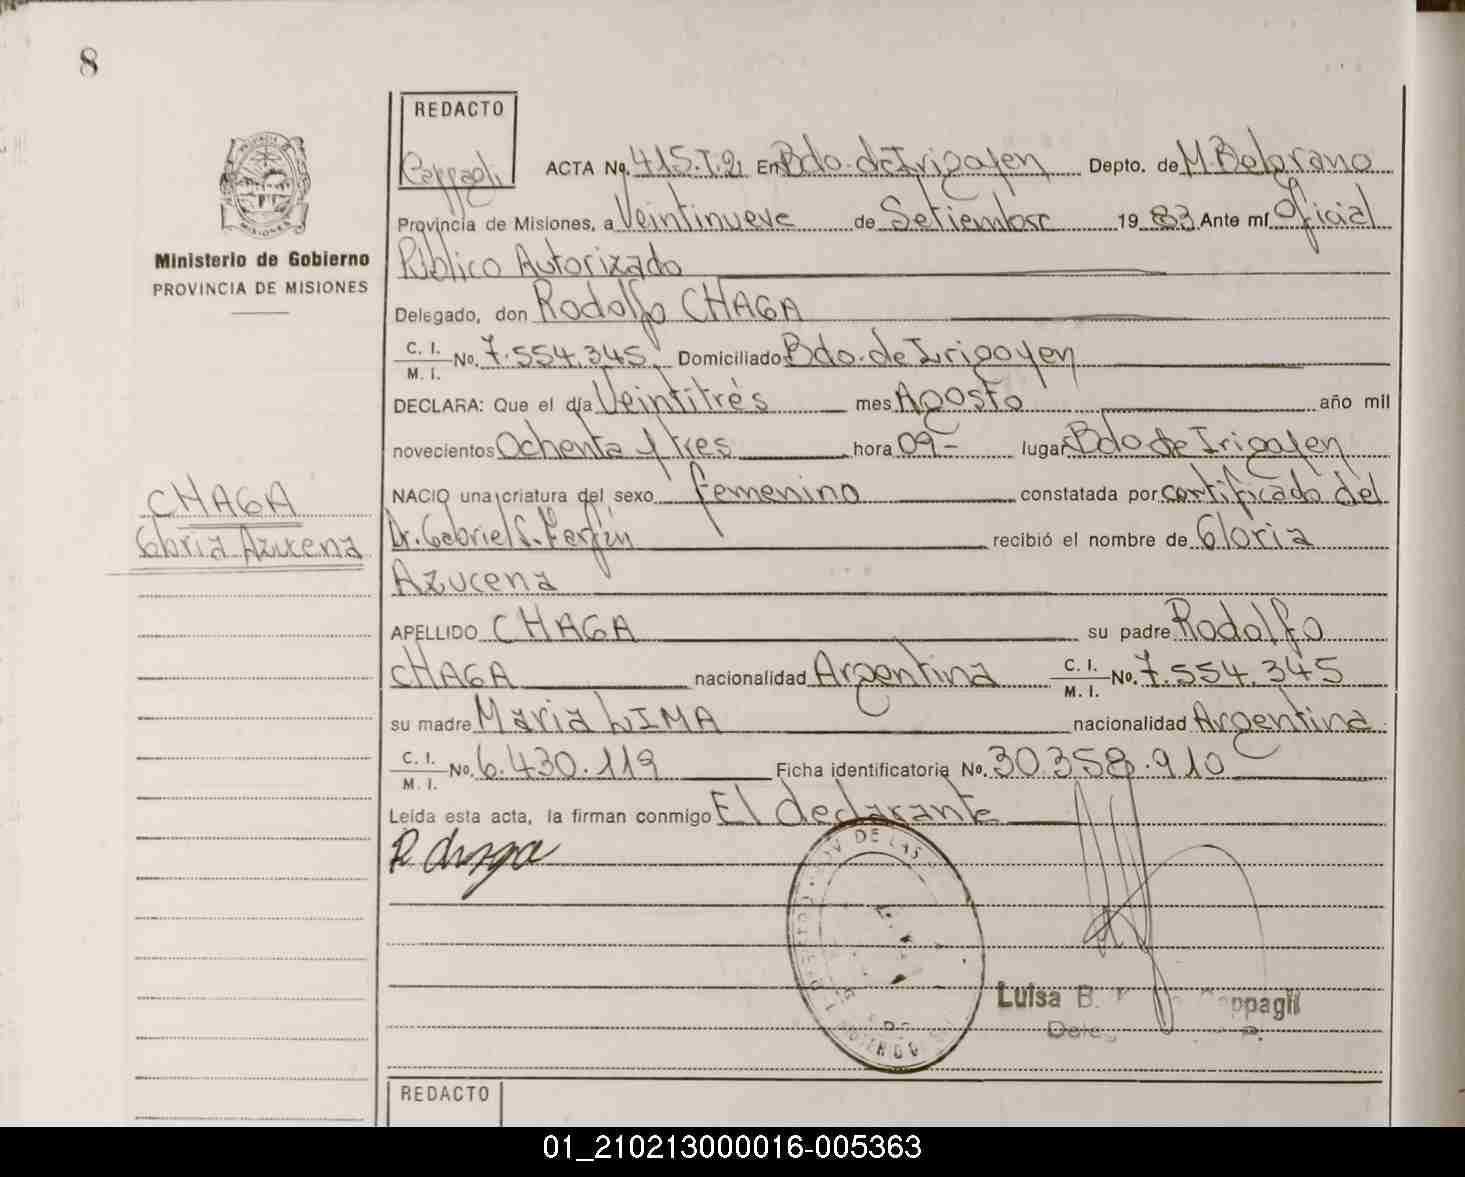 8
REDACTO
Cappagli
ACTA No. 415.T.2 En Bdo. de Irigoyen Depto. de M. Belgrano
Provincia de Misiones, a Veintinueve de Setiembre 19 83 Ante mí Oficial
Público Autorizado
Delegado, don Rodolfo CHAGA
C. I.
M. I. No. 7.554.345. Domiciliado Bdo. de Irigoyen
DECLARA: Que el día Veintitrés mes Agosto año mil
novecientos Ochenta y tres hora 09- lugar Bdo de Irigoyen
NACIO una criatura del sexo femenino constatada por certificado del
Dr. Gabriel S. recibió el nombre de Gloria
Azucena
APELLIDO CHAGA su padre Rodolfo
CHAGA nacionalidad Argentina C. I.
M. I. No. 7.554.345
su madre Maria LIMA nacionalidad Argentina
C. I.
M. I. No. 6.430.119 Ficha identificatoria No. 30.358.910
Leída esta acta, la firman conmigo El declarante
R. Chaga
DE LAS
Luisa B. Cappagli
Ministerio de Gobierno
PROVINCIA DE MISIONES
CHAGA
Gloria Azucena
REDACTO
01_210213000016-005363